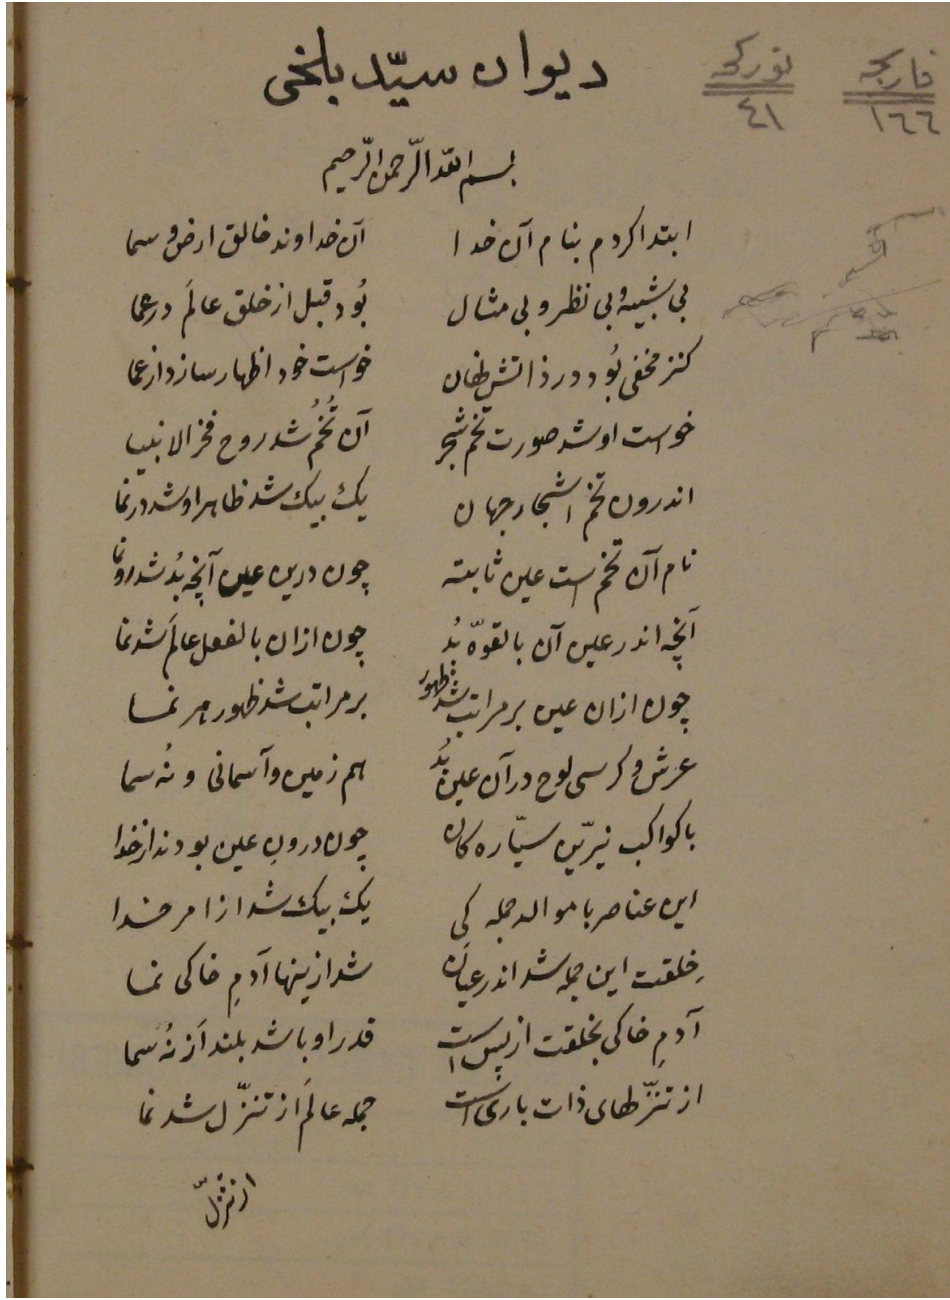 ديوان سيّد بلخى
فارسجه
١٦٦
توركجه
٤١
بسم الله الرّحمن الرّحيم
ابتدا كردم بنام آن خدا آن خداوند خالق ارض و سما
بى شبيه و بى نظر و بى مثال بُود قبل از خلق عالَم در عما
كنز مخفى بُود در ذاتش نهان خواست خود اظهار سازد از عما
خواست او شد صورت تخم شجر آن تُخُمُ شد روح فخر الانبيا
اندرون تخم اشجار جهان يك بيك شد ظاهر او شد در نما
نام آن تخم است عين ثابته چون درين عين آنچه بُد شد رونما
آنچه اندر عين آن بالقوّه بُد چون ازان بالفعل عالَم شد نما
چون ازان عين بر مراتب شد ظهور بر مراتب شد ظهور هر نما
عرش و كرسى لوح در آن عين بُد هم زمين و آسمانى و نُه سما
با كواكب نيّرين سيّاره كان چون درون عين بودند از خدا
اين عناصر با مواليد جمله كى يك بيك شد از امر خدا
خِلقت اين جمله شد اندر عيان شد ازينها آدمِ خاكى نما
آدمِ خاكى بخلقت از پس است قدر او باشد بلند از نُه سما
از تنزّلهاى ذات بارى است جمله عالَم از تنزّل شد نما
از تنزّل